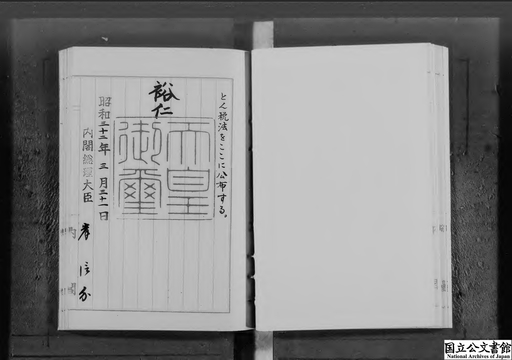 とん税法をここに公布する。
裕仁
天皇
御璽
昭和三十二年三月三十一日
内閣総理大臣 岸信介
国立公文書館
National Archives of Japan